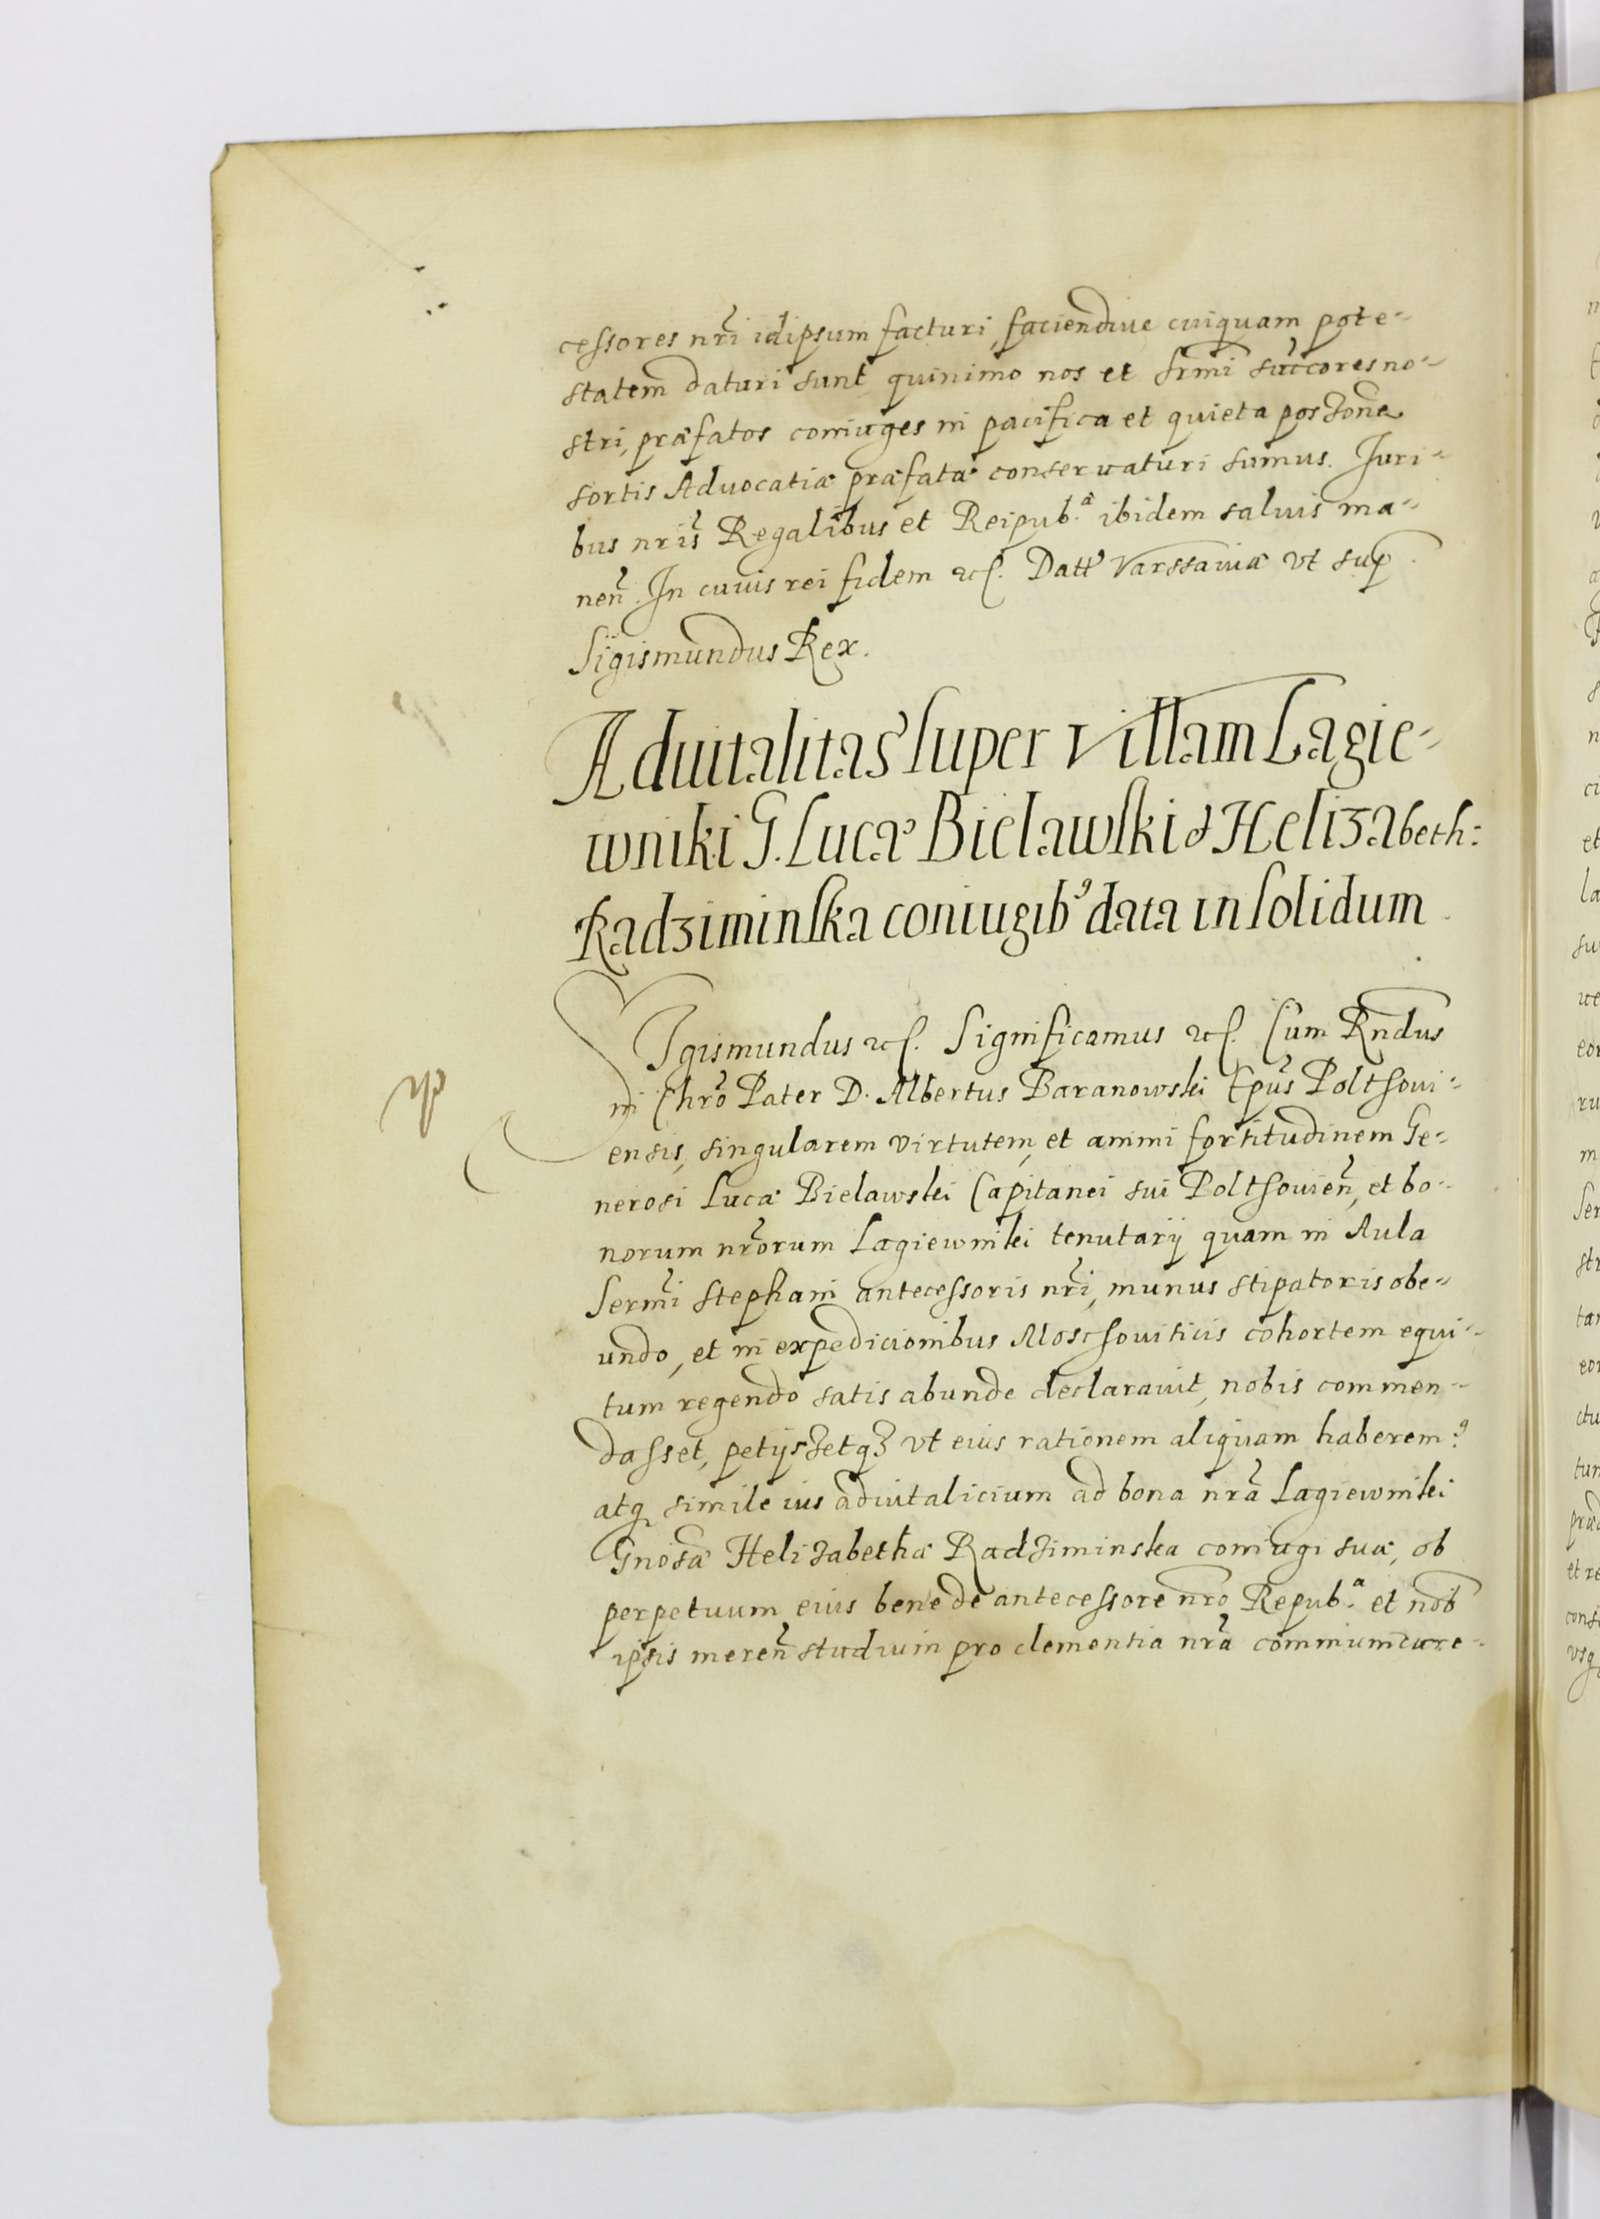 cessores nr̃i idipsum facturi, faciendiue cuiquam pote-
statem daturi sunt, quinimo nos et Srmi succores no-
stri, præfatos coniuges in pacifica et quieta poszone
sortis Aduocatiæ præfatæ conseruaturi sumus. Juri-
bus nris̃ Regalibus et Reipub.ᵃ ibidem saluis ma-
neñ. In cuius rei fidem etc. Datt Varssauiæ vt sup
Sigismundus Rex.
Aduitalitas super Villam Lagie-
wniki G. Lucæ Bielawski & Helizabeth:
Radziminska coniugibꝰ data in solidum
SIgismundus etc. Significamus etc. Cum Rndus
in Chrõ Pater D. Albertus Baranowski Epũs Poltsoui-
ensis, singularem virtutem, et animi fortitudinem Ge-
nerosi Lucæ Bielawski Capitanei sui Poltsouieñ, et bo-
norum nrõrum Lagiewniki tenutarij quam in Aula
Sermi Stephani antecessoris nr̃i, munus stipatoris obe-
undo, et in expedicionibus Moscsouiticis cohortem equi-
tum regendo satis abunde declarauit, nobis commen-
dasset, petijszetqꝫ vt eius rationem aliquam haberem:ꝰ
atq simile ius aduitalicium ad bona nrã Lagiewniki
Gnosæ Helizabethæ Radziminska coniugi suæ, ob
perpetuum eius bene de antecessore nro Repub.ᵃ et nob
ipsis mereñ studium pro clementia nrã communicare-